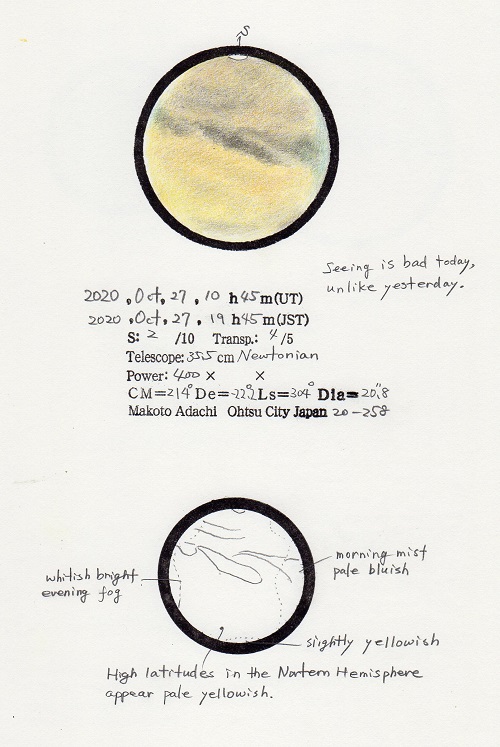 S
Seeing is bad today,
unlike yesterday.
2020, Oct, 27, 10 h45m(UT)
2020, Oct, 27, 19 h45m(JST)
S: 2 /10 Transp.: 4/5
Telescope: 35.5 cm Newtonian
Power: 400 × ×
CM=214° De=-22.2 Ls=304° Dia=20".8
Makoto Adachi Ohtsu City Japan 20-258
morning mist
pale bluish
whitish bright
evening fog
slightly yellowish
High latitudes in the Nortern Hemisphere
appear pale yellowish.